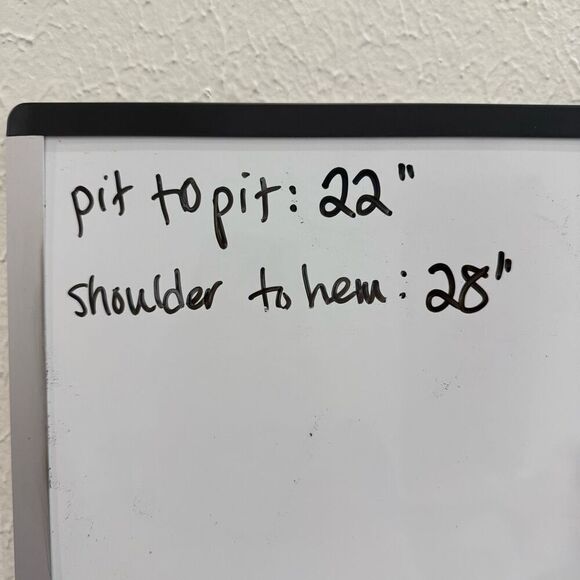 pit to pit: 22"
shoulder to hem: 28"